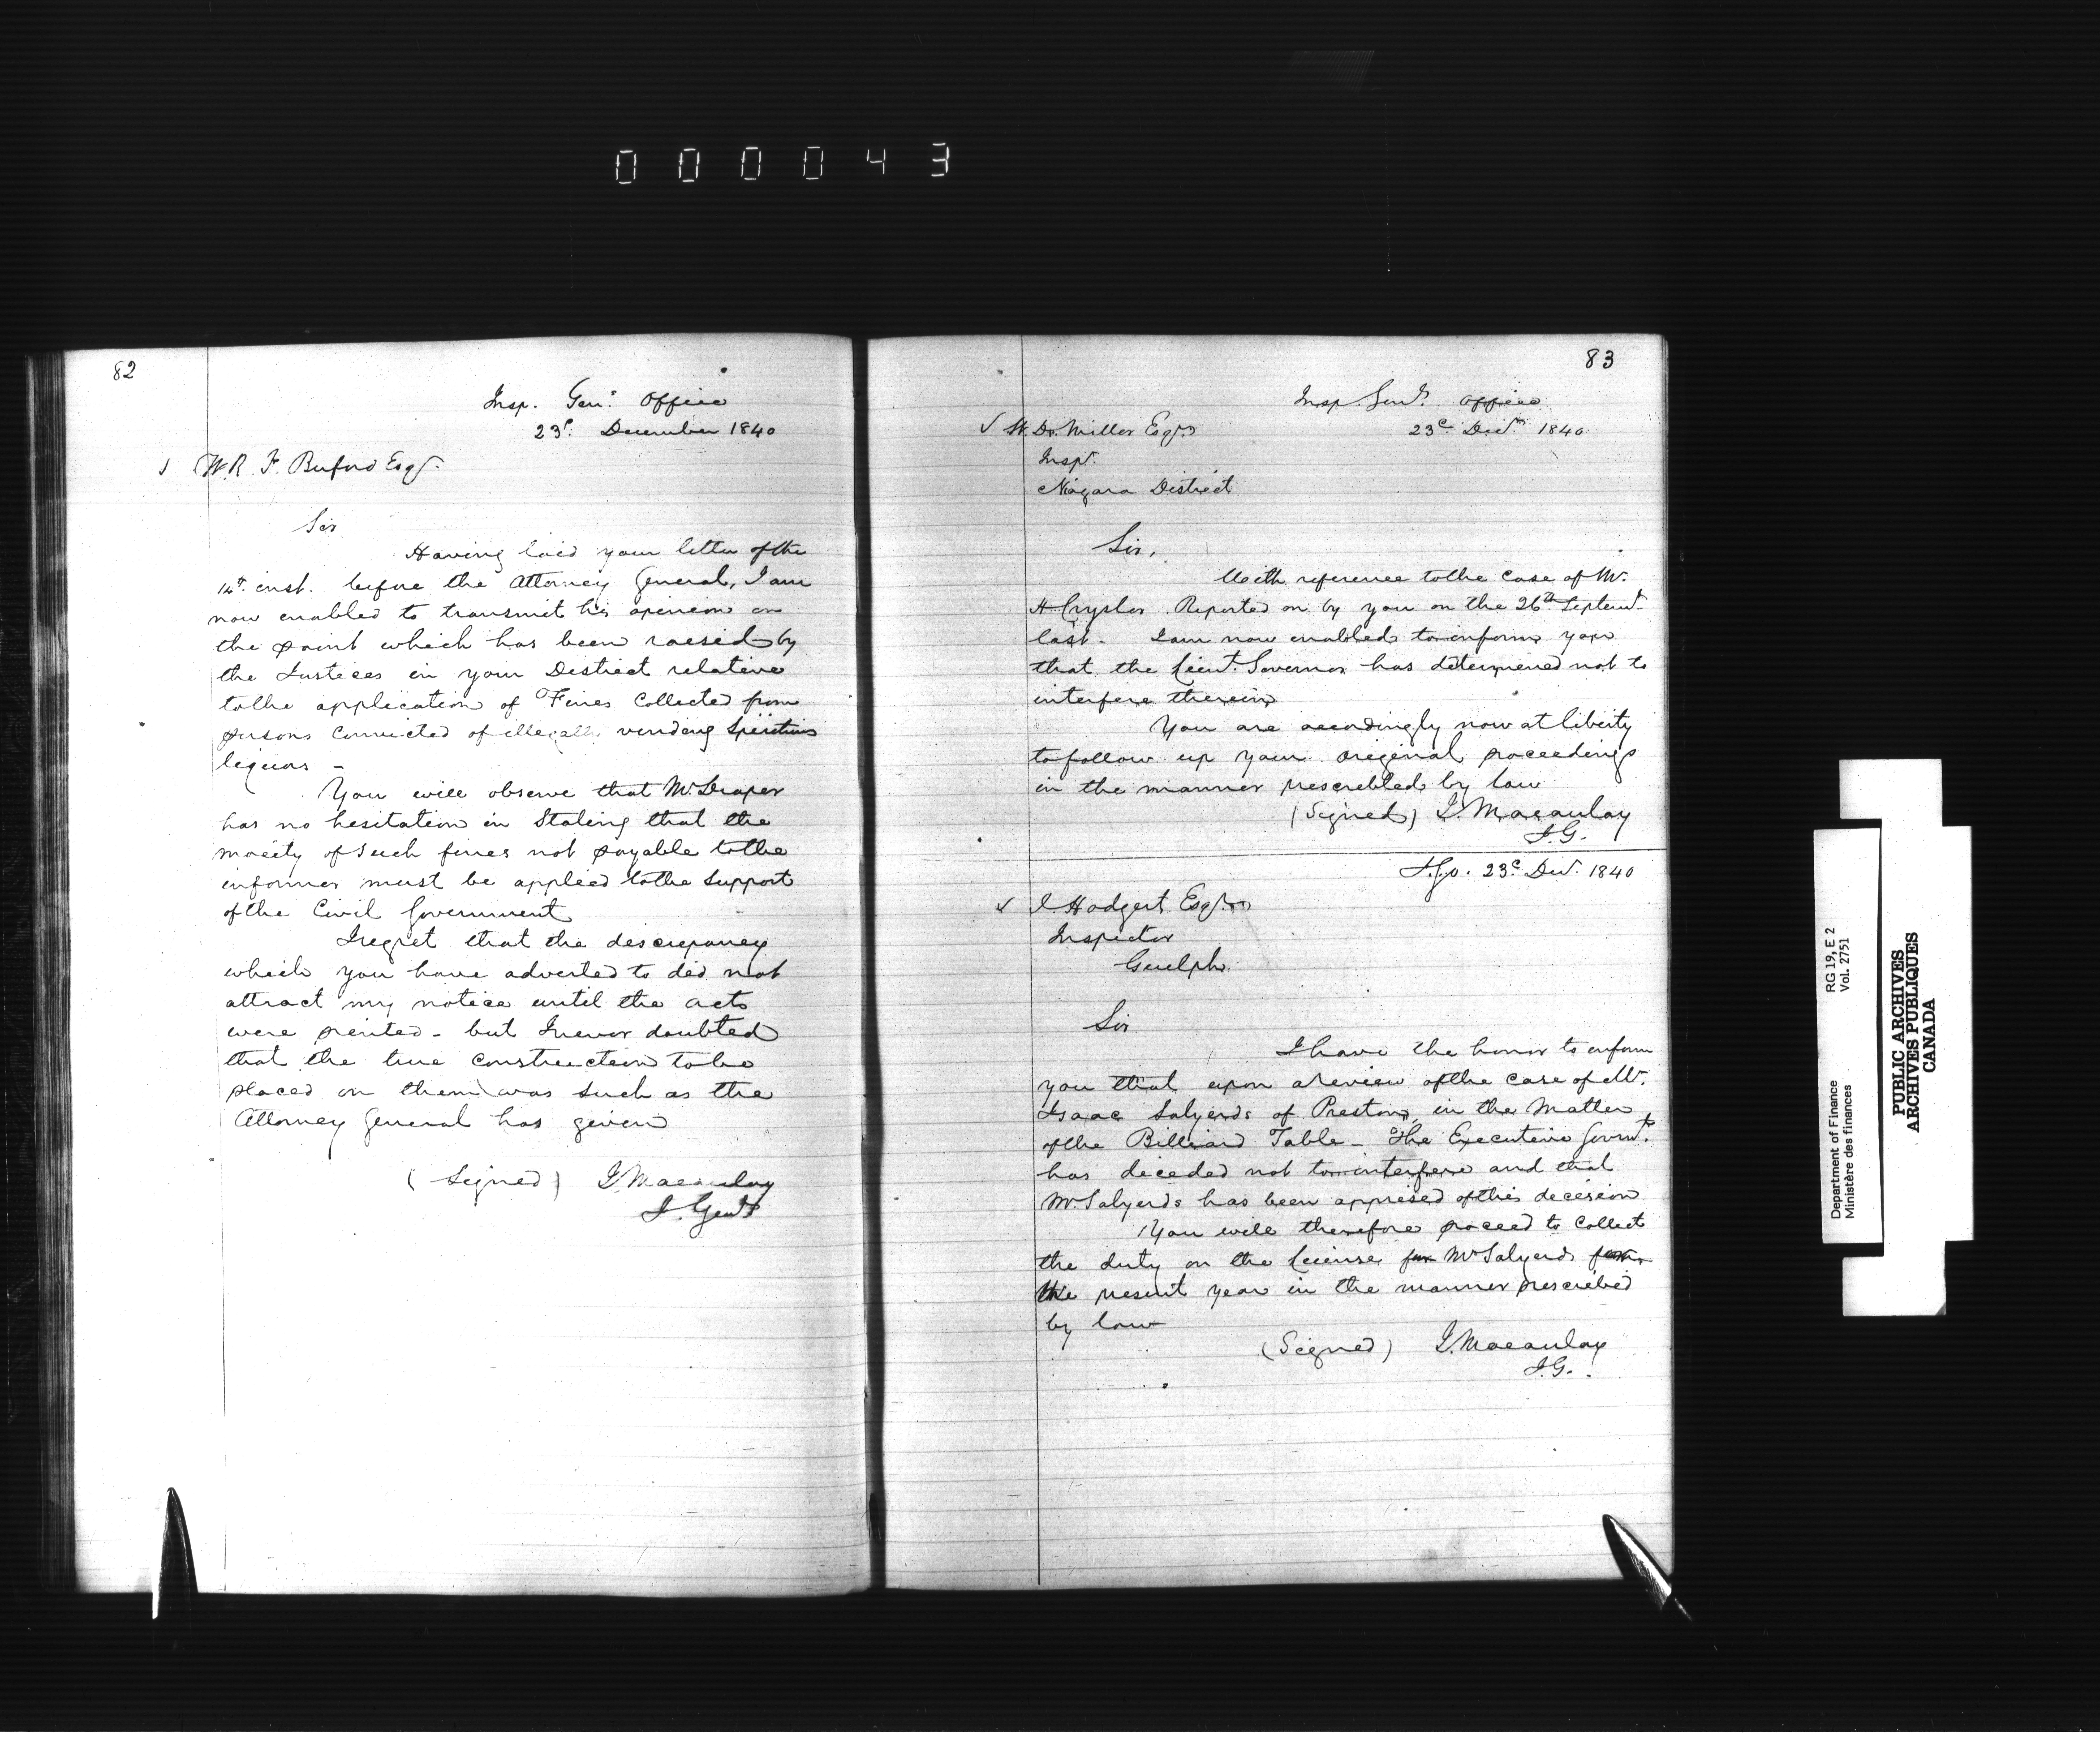 000043
82
Insp. Genl. Office
23d. December 1840
W. R. F. Buford Esqr.
Sir
Having laid your letter of the
14th. inst. before the Attorney General, I am
now enabled to transmit his opinion on
the point which has been raised by
the Justices in your District relative
to the application of Fines Collected from
persons Convicted of illegally vending Spiritous
liquors -
You will observe that Mr. Draper
has no hesitation in Stating that the
moeity of such fines not payable to the
informer must be applied to the Support
of the Civil Government
I regret that the discrepancy
which you have adverted to did not
attract my notice until the acts
were printed - but I never doubted
that the true construction to be
placed on them was such as the
Attorney General has given
(Signed) J. Macaulay
I. Genl
83
Insp. Genl. Office
23d Decr. 1840
W. D. Miller Esqr.
Inspr.
Niagara District
Sir,
With reference to the case of Mr.
H Crysler Reported on by you on the 26th Septemr.
last. I am now enabled to inform you
that the Lieut. Governor has determined not to
interfere therein
You are accordingly now at liberty
to follow up your original proceedings
in the manner prescribed by law
(Signed) J. Macaulay
I.G.
I.G.O. 23d Decr. 1840
J. Hodgert Esqr.
Inspector
Guelph
Sir
I have the honor to inform
you that upon a review of the case of Mr.
Isaac Salyerds of Preston, in the Matter
of the Billiard Table - The Executive Govrnt.
has decided not to interfere and that
Mr. Salyerds has been apprised of this decision
You will therefore proceed to Collect
the duty on the License for Mr Salyerds for
the present year in the manner prescribed
by law
(Signed) J. Macaulay
I.G.
Department of Finance
Ministère des finances
RG 19, E 2
Vol. 2751
PUBLIC ARCHIVES
ARCHIVES PUBLIQUES
CANADA